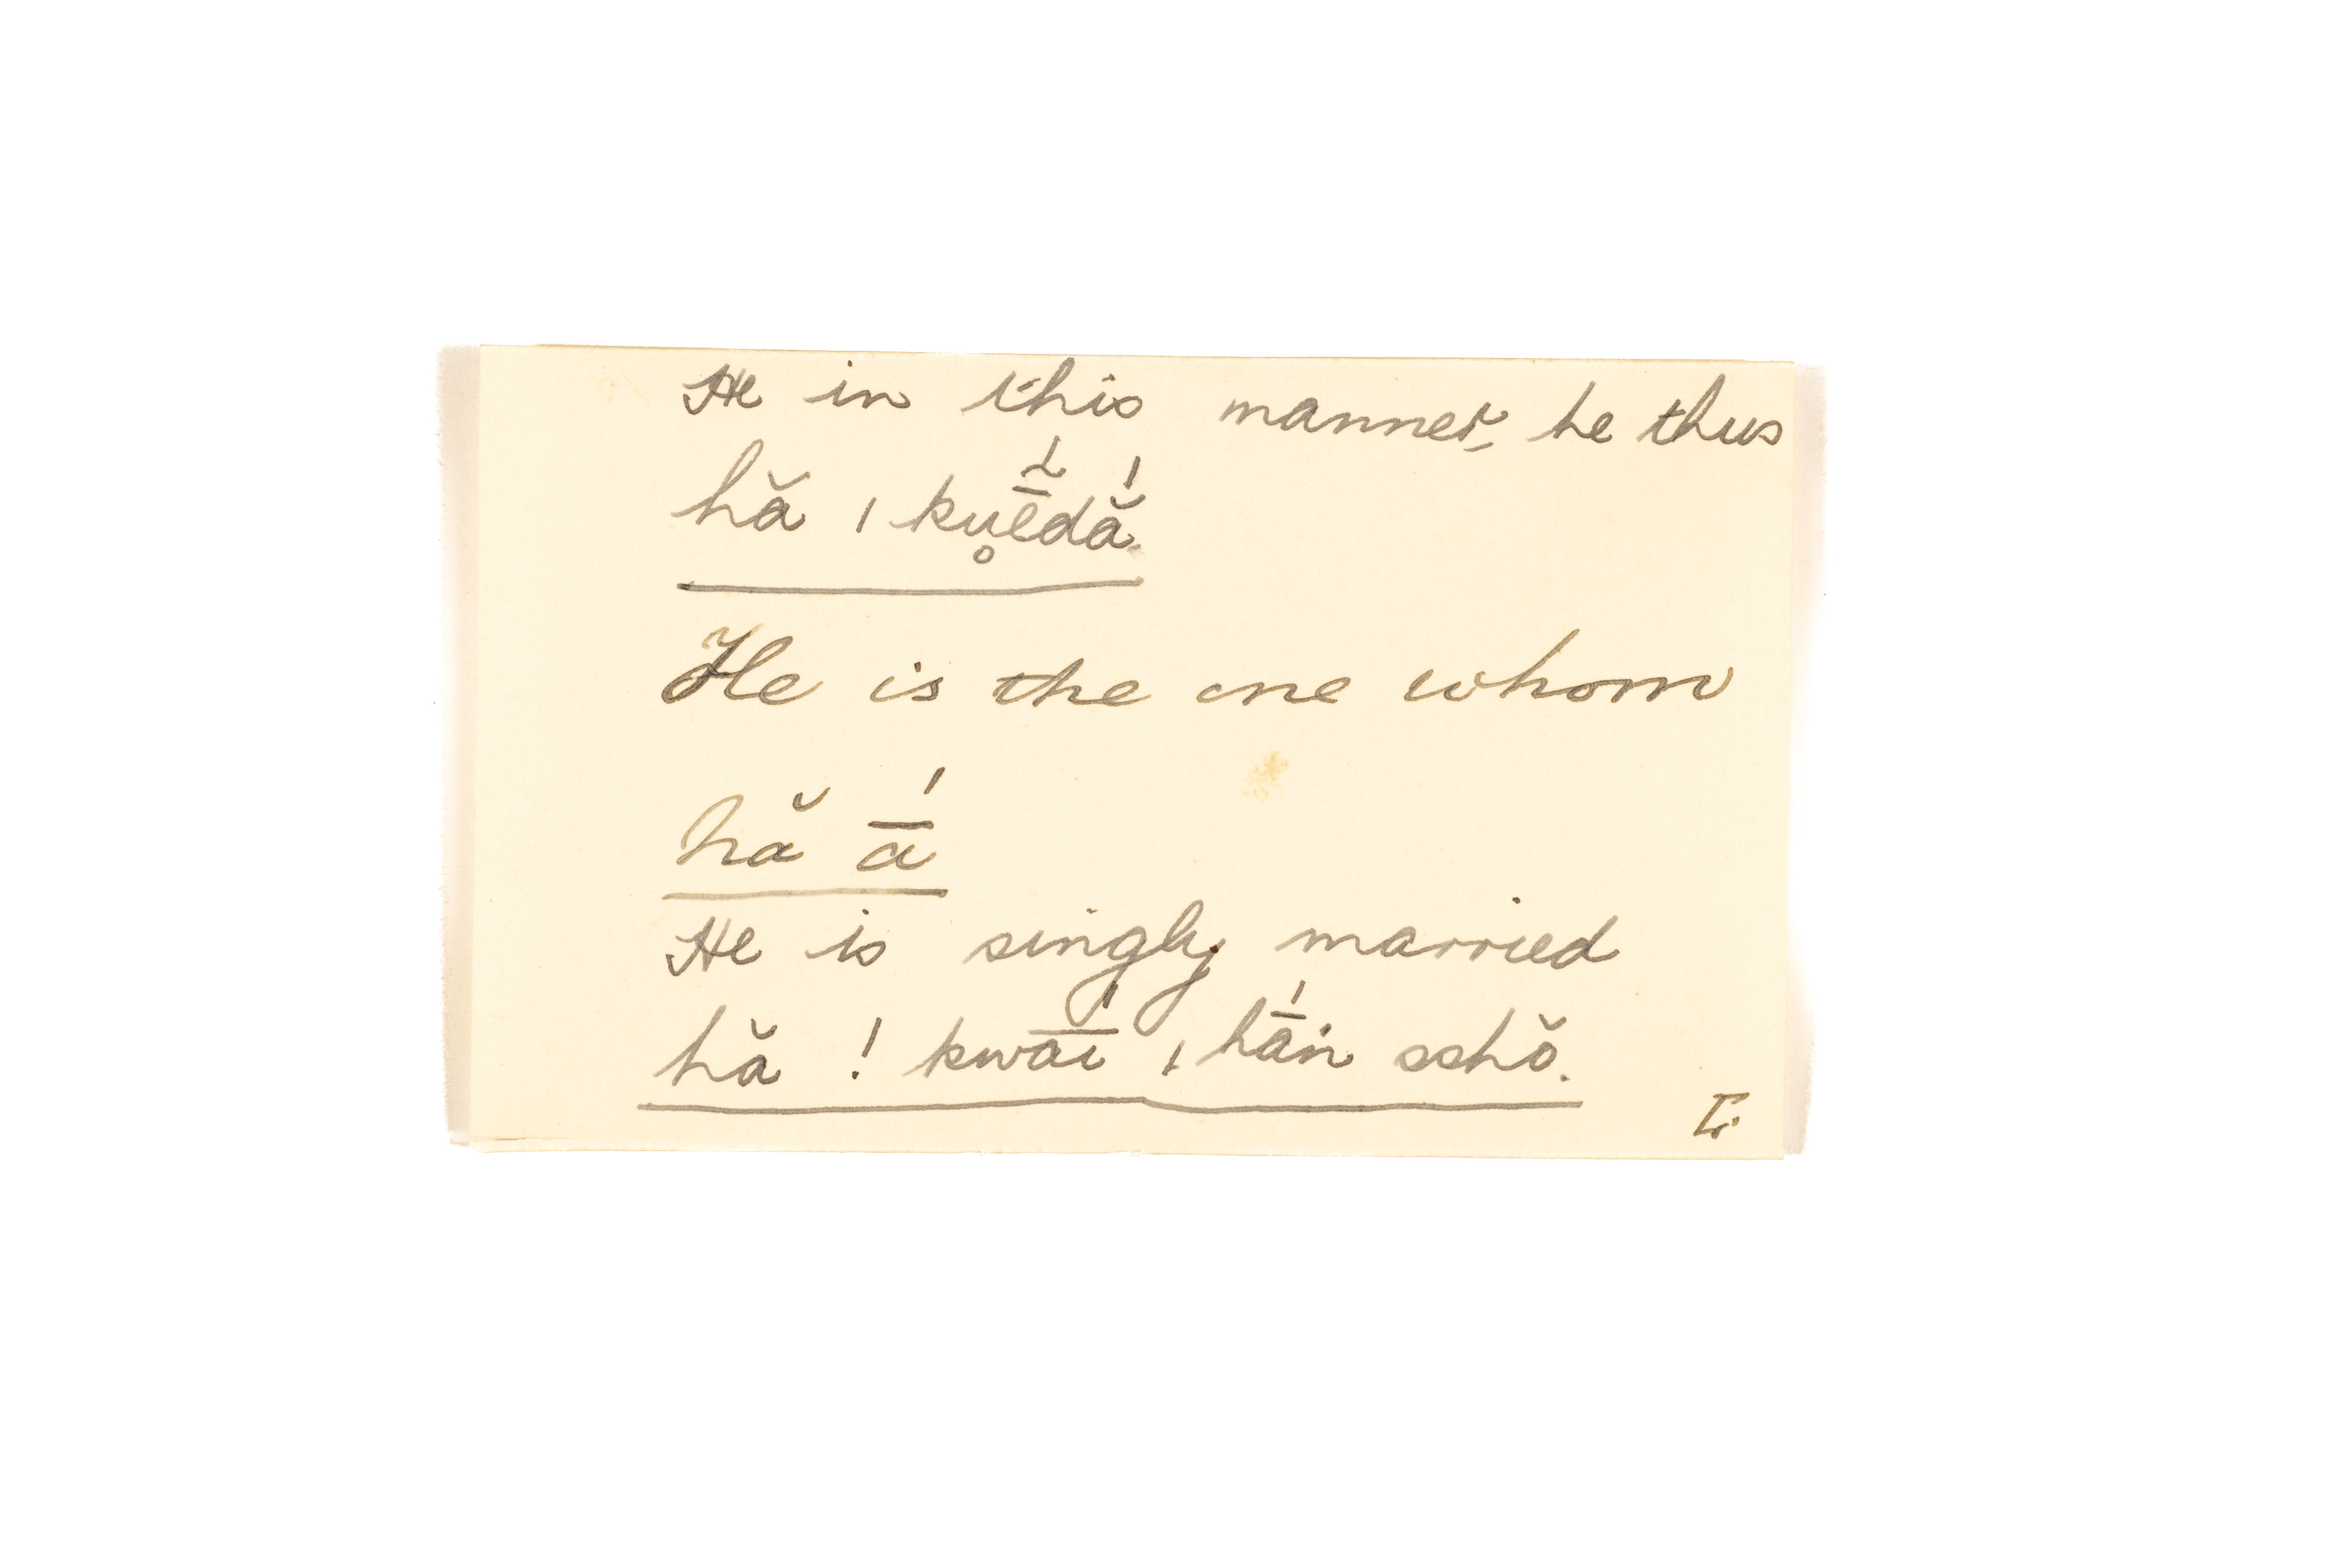 He in this manner, he thus
hă ˌkṷ̄̃́ĕdắ.
He is the one whom
hă ā́
He is singly married
hă ! kwā́ı̄ ˌhā́n sshŏ.
L.